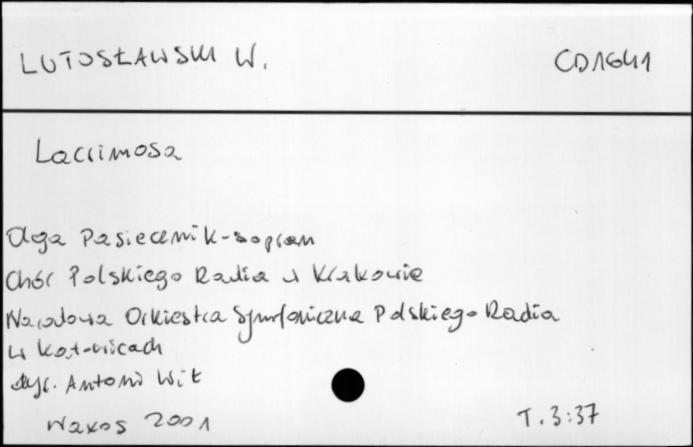 LUTOSŁAWSKI W. CD1641
Lacrimosa
Olga Pasiecznik - sopran
Chór Polskiego Radia w Krakowie
Narodowa Orkiestra Symfoniczna Polskiego Radia
w Katowicach
dyr. Antoni Wit
Naxos 2001 T. 3:37